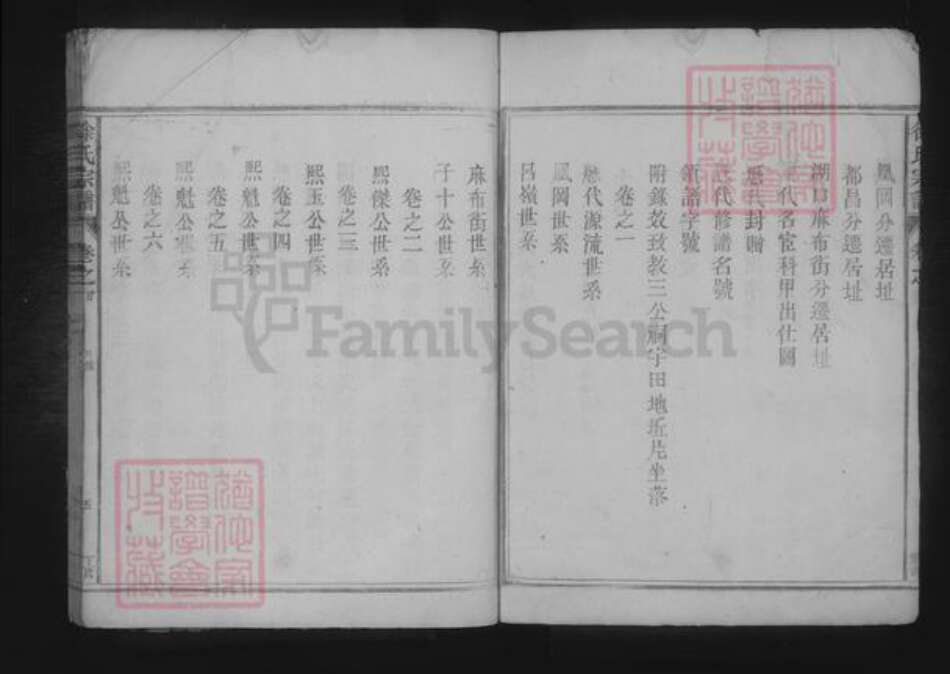 鳳岡分遷居址
都昌分遷居址
湖口麻布街分遷居址
歷代名宦科甲出仕圖
歷代封贈
歷代修譜名號
領譜字號
附錄效致教三公嗣宇田地坵片坐落
卷之一
歷代源流世系
鳳岡世系
呂嶺世系
麻布街世系
子十公世系
卷之二
熙傑公世系
卷之三
熙玉公世系
卷之四
熙魁公世系
卷之五
熙魁公世系
卷之六
熙魁公世系
徐氏宗譜
卷之首
五
FamilySearch